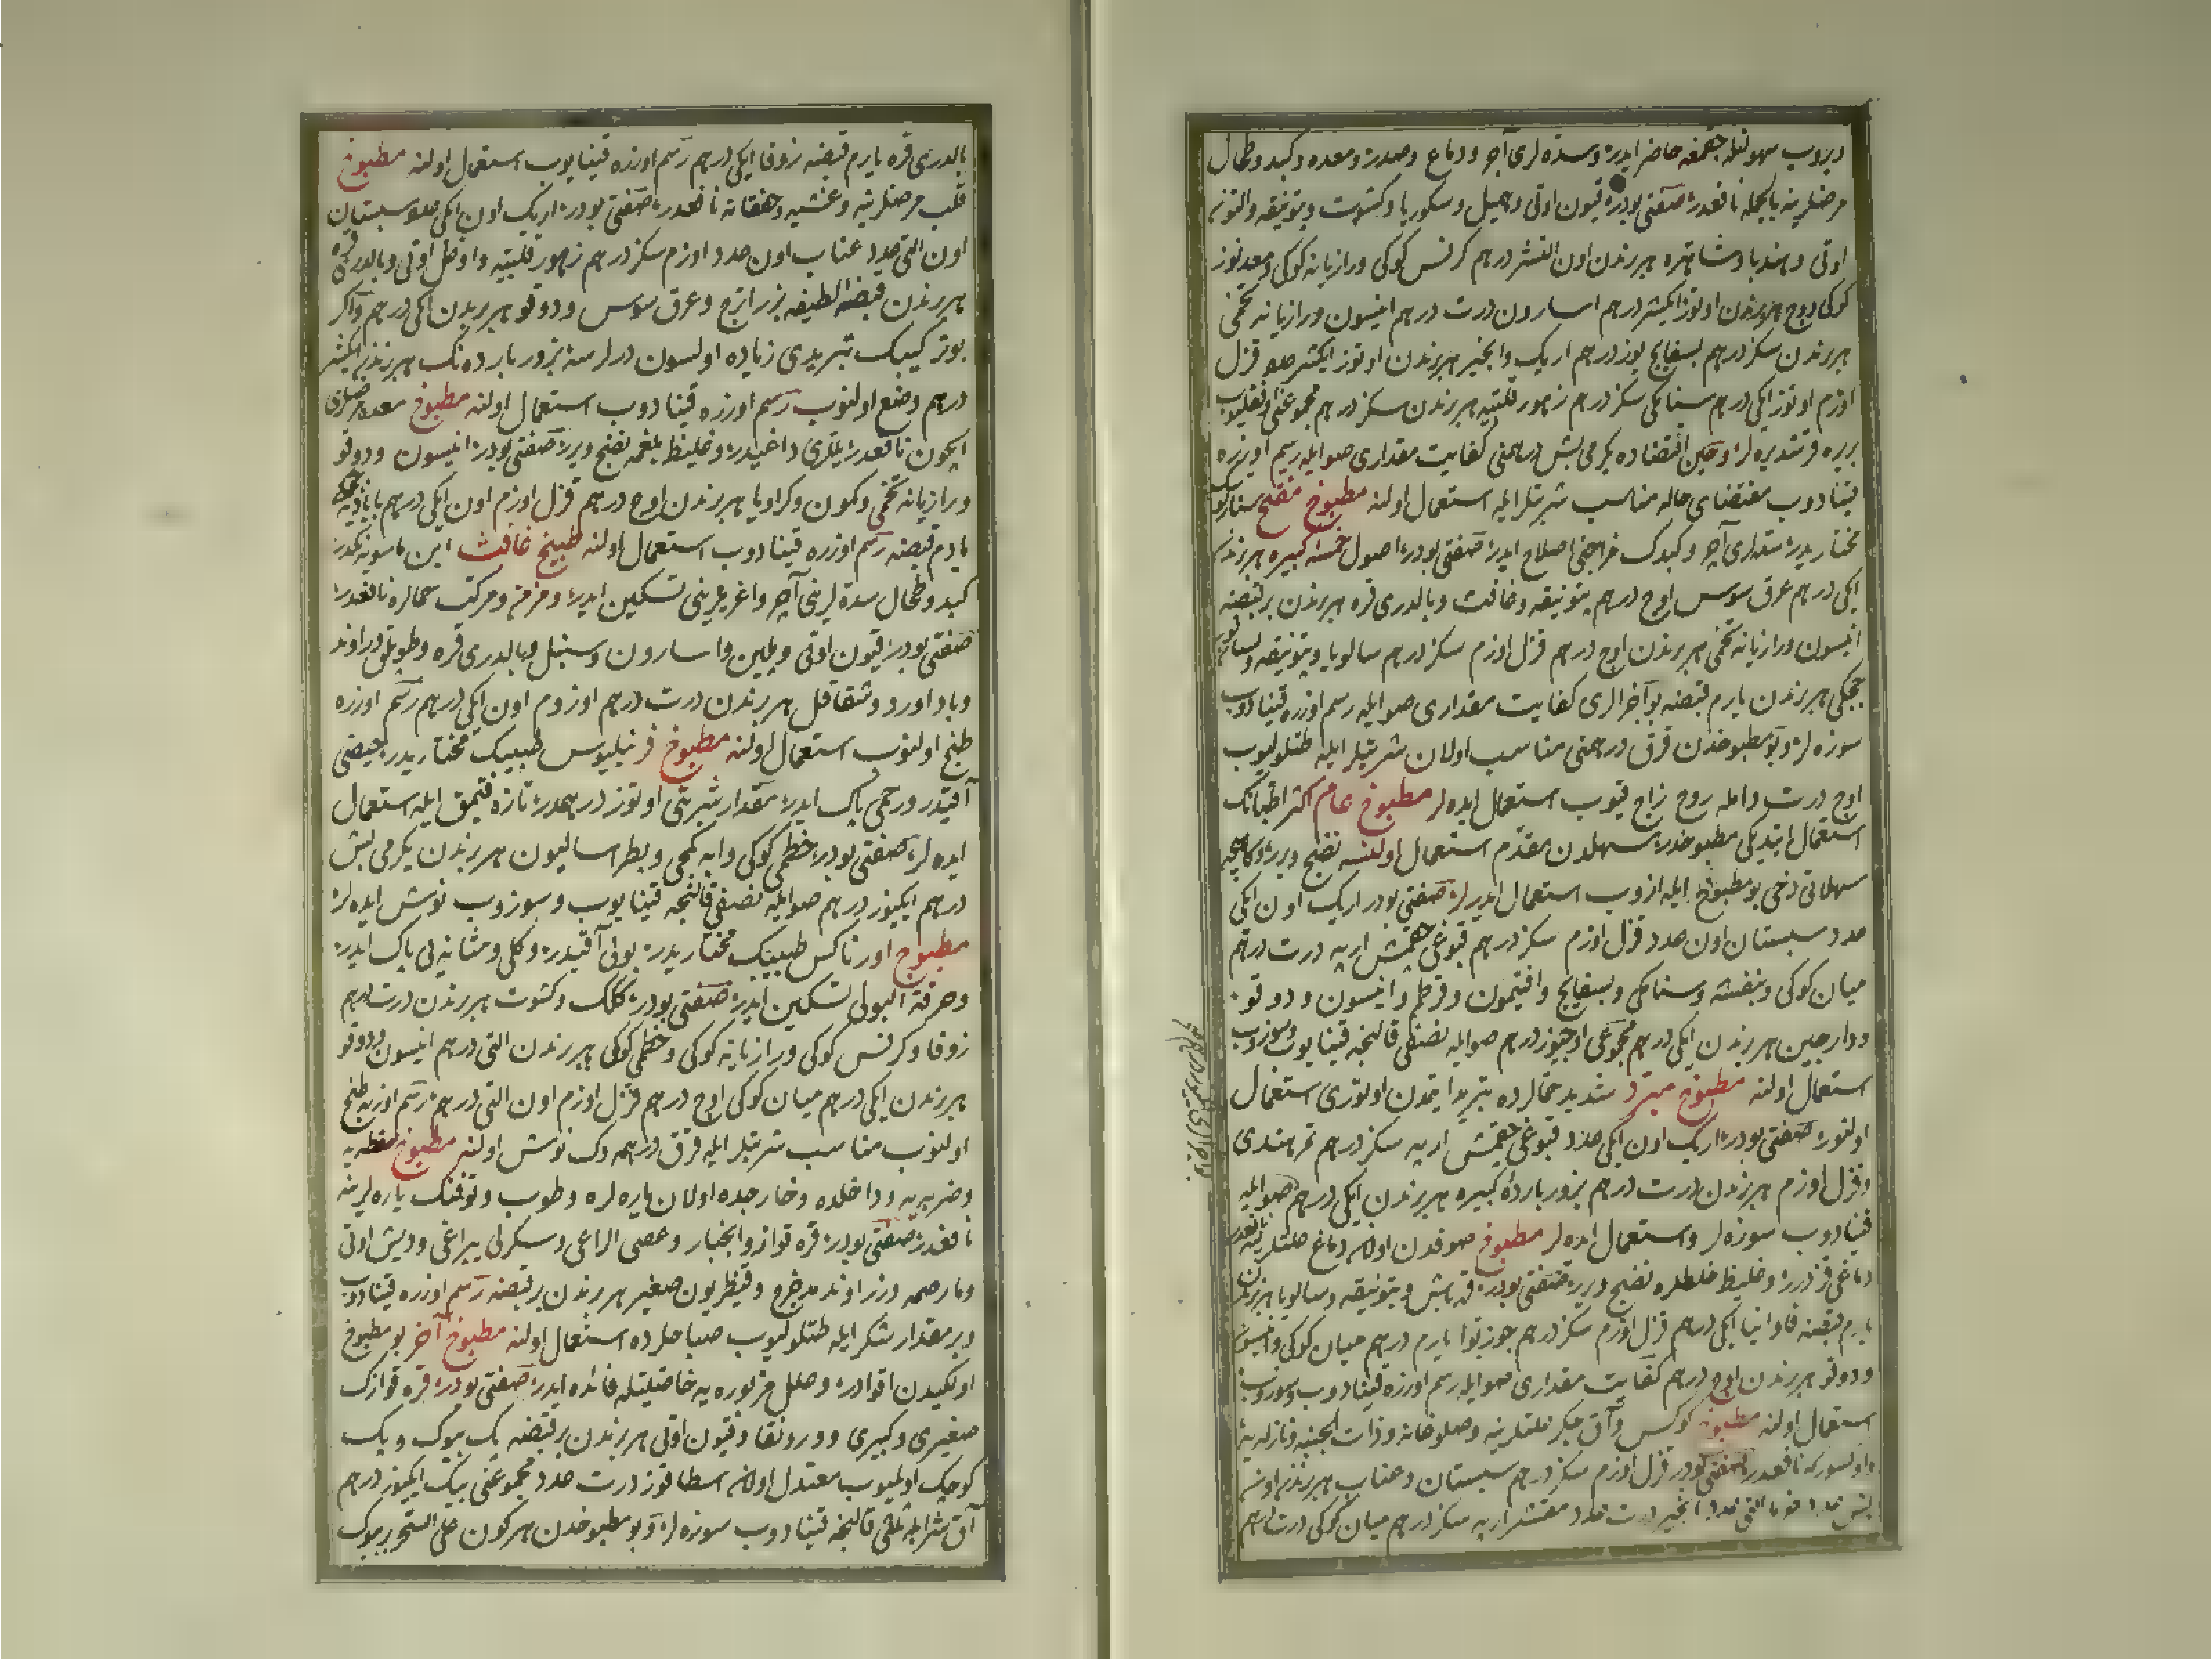 ويروب سهولتله چقمغه حاضر ايدر وسده لرى آچر ودماغ وصدر ومعده وكبد وطحال
مرضلرينه بالجمله نافعدر صفتى بودر قيون اوتى وچميل وسكوريا وكشوت وبتونيقه والتون
اوتى وهندبا وشاهتره هربرندن اون التشر درهم كرفس كوكى ورازيانه كوكى
كوكى هربرندن اوتوز ايكيشر درهم اسارون درت درهم انيسون ورازيانه تخمى
هربرندن سكز درهم بسفايج يوز درهم اريك وانجير هربرندن اوتوز ايكيشر عدد قزل
اوزم اوتوز ايكى درهم سنامكى سكز درهم زهور قلبيه هربرندن سكز درهم مجموعنى
بربره قرشديره لر وحين اقتضاده يكرمى بش درهمنى كفايت مقدارى صو ايله رسم اوزره
قينادوب مقتضاى حاله مناسب شربتلر ايله استعمال اولنه مطبوخ مفتح
مختاريدر سدلرى آچر وكبدك مزاجنى اصلاح ايدر صفتى بودر اصول خمسه كبيره هربرندن
ايكى درهم عرق سوس اوچ درهم بتونيقه وغافت وبالدرى قره هربرندن برقبضه
انيسون ورازيانه تخمى هربرندن اوچ درهم قزل اوزم سكز درهم سالويا وبتونيقه
چچكى هربرندن يارم قبضه بو اجزالرى كفايت مقدارى صو ايله رسم اوزره قينادوب
سوزه لر وبو مطبوخدن قرق درهمنى مناسب اولان شربتلر ايله طتلولیوب
اوچ درت دامله روح زاج قيوب استعمال ايده لر مطبوخ عام اكثر اطبانك
استعمال ايتديكى مطبوخدر مسهلدن مقدم استعمال اولنسه نضج ويرر
مسهلاتى دخى بو مطبوخ ايله ازوب استعمال ايدرلر صفتى بودر اريك اون ايكى
عدد سبستان اون عدد قزل اوزم سكز درهم قبوغى چقمش ارپه درت درهم
ميان كوكى وبنفشه وسنامكى وبسفايج وافتيمون وقرطم وانيسون ودوقو
ودارچين هربرندن ايكى درهم مجموعى اوچيوز درهم صو ايله نصفى قالنجه قينايوب وسوزوب
استعمال اولنه مطبوخ مبرد شديد حمالرده تبريد ايتمدن اوتورى استعمال
اولنور صفتى بودر اريك اون ايكى عدد قبوغى چقمش ارپه سكز درهم تمر هندى
وقزل اوزم هربرندن درت درهم بزور بارده كبيره هربرندن ايكى درهم صو ايله
قينادوب سوزه لر واستعمال ايده لر مطبوخ صوغقدن اولان دماغ علتلرينه نافعدر
دماغى قزدرر وغليظ خلطلره نضج ويرر صفتى بودر وبتونيقه وسالويا هربرندن
يارم قبضه فاوانيا ايكى درهم قزل اوزم سكز درهم جوز بوا يارم درهم ميان كوكى وانيسون
ودوقو هربرندن اوچ درهم كفايت مقدارى صو ايله رسم اوزره قينادوب وسوزوب
استعمال اولنه مطبوخ كوكس وآق جكر علتلرينه وذات الجنبه ونازله يه
واوكسوركه نافعدر صفتى بودر قزل اوزم سكز درهم سبستان وعناب هربرندن اون
بش عدد خرما التى عدد انجير درت عدد مقشر ارپه سكز درهم ميان كوكى درت درهم
بالدرى قره يارم قبضه زوفا ايكى درهم رسم اوزره قينايوب استعمال اولنه مطبوخ
قلب مرضلرينه وغشيه وخفقانه نافعدر صفتى بودر اريك اون ايكى عدد سبستان
اون التى عدد عناب اون عدد اوزم سكز درهم زهور قلبيه واوغل اوتى وبالدرى قره
هربرندن قبضه لطيفه بزر اترج وعرق سوس ودوقو هربرندن ايكى درهم واكر
بو تركيبك تبريدى زياده اولسون درلرسه بزور بارده نك هربرندن ايكيشر
درهم وضع اولنوب رسم اوزره قينادوب استعمال اولنه مطبوخ معده مرضلرى
ايچون نافعدر يللرى داغيدر وغليظ بلغمه نضج ويرر صفتى بودر انيسون ودوقو
ورازيانه تخمى وكمون وكراويا هربرندن اوچ درهم قزل اوزم اون ايكى درهم بابادیه
يارم قبضه رسم اوزره قينادوب استعمال اولنه طبيخ غافث ابن ماسويه نكدر
كبد وطحال سده لرينى آچر واغريلرينى تسكين ايدر ومزمن ومركب حمالره نافعدر
صفتى بودر قيون اوتى وپلين واسارون وسنبل وبالدرى قره وطوپلى راوند
وباداورد وشقاقل هربرندن درت درهم اوزوم اون ايكى درهم رسم اوزره
طبخ اولنوب استعمال اولنه مطبوخ فرنيليوس طبيبك مختاريدر حيضى
آقيدر ورحمى پاك ايدر مقدار شربتى اوتوز درهمدر تازه قيمق ايله استعمال
ايده لر صفتى بودر خطمى كوكى وابه كمجى وبطراساليون هربرندن يكرمى بش
درهم ايكيوز درهم صو ايله نصفى قالنجه قينايوب وسوزوب نوش ايده لر
مطبوخ اورناكس طبيبك مختاريدر بولى آقيدر وكلى ومثانه يى پاك ايدر
وحرقة البولى تسكين ايدر صفتى بودر كلك وكشوت هربرندن درت درهم
زوفا وكرفس كوكى ورازيانه كوكى وخطمى كوكى هربرندن التى درهم انيسون ودوقو
هربرندن ايكى درهم ميان كوكى اوچ درهم قزل اوزم اون التى درهم رسم اوزره طبخ
اولنوب مناسب شربتلر ايله قرق درهمه دك نوش اولنه مطبوخ سقطه يه
وضربه يه وداخلده وخارجده اولان ياره لره وطوب وتوفنك ياره لرينه
نافعدر صفتى بودر قره قواز وانجبار وعصى الراعى وسكرلى يپراغى وديش اوتى
ومارصمه وزراوند مدحرج وقنطريون صغير هربرندن برقبضه رسم اوزره قينادوب
وبرمقدار شكر ايله طتلولیوب صباحلرده استعمال اولنه مطبوخ آخر بو مطبوخ
اولكيدن اقوادر وعلل مزبوره يه خاصيتله فائده ايدر صفتى بودر قره قوازك
صغيرى وكبيرى ودرونقا وقيون اوتى هربرندن برقبضه پك بيوك وپك
كوچك اولميوب معتدل اولان اسطاقوز درت عدد مجموعنى بيك ايكيوز درهم
آق شراب ايله ثلثى قالنجه قينادوب سوزه لر وبو مطبوخدن هركون على السحر بربيوك